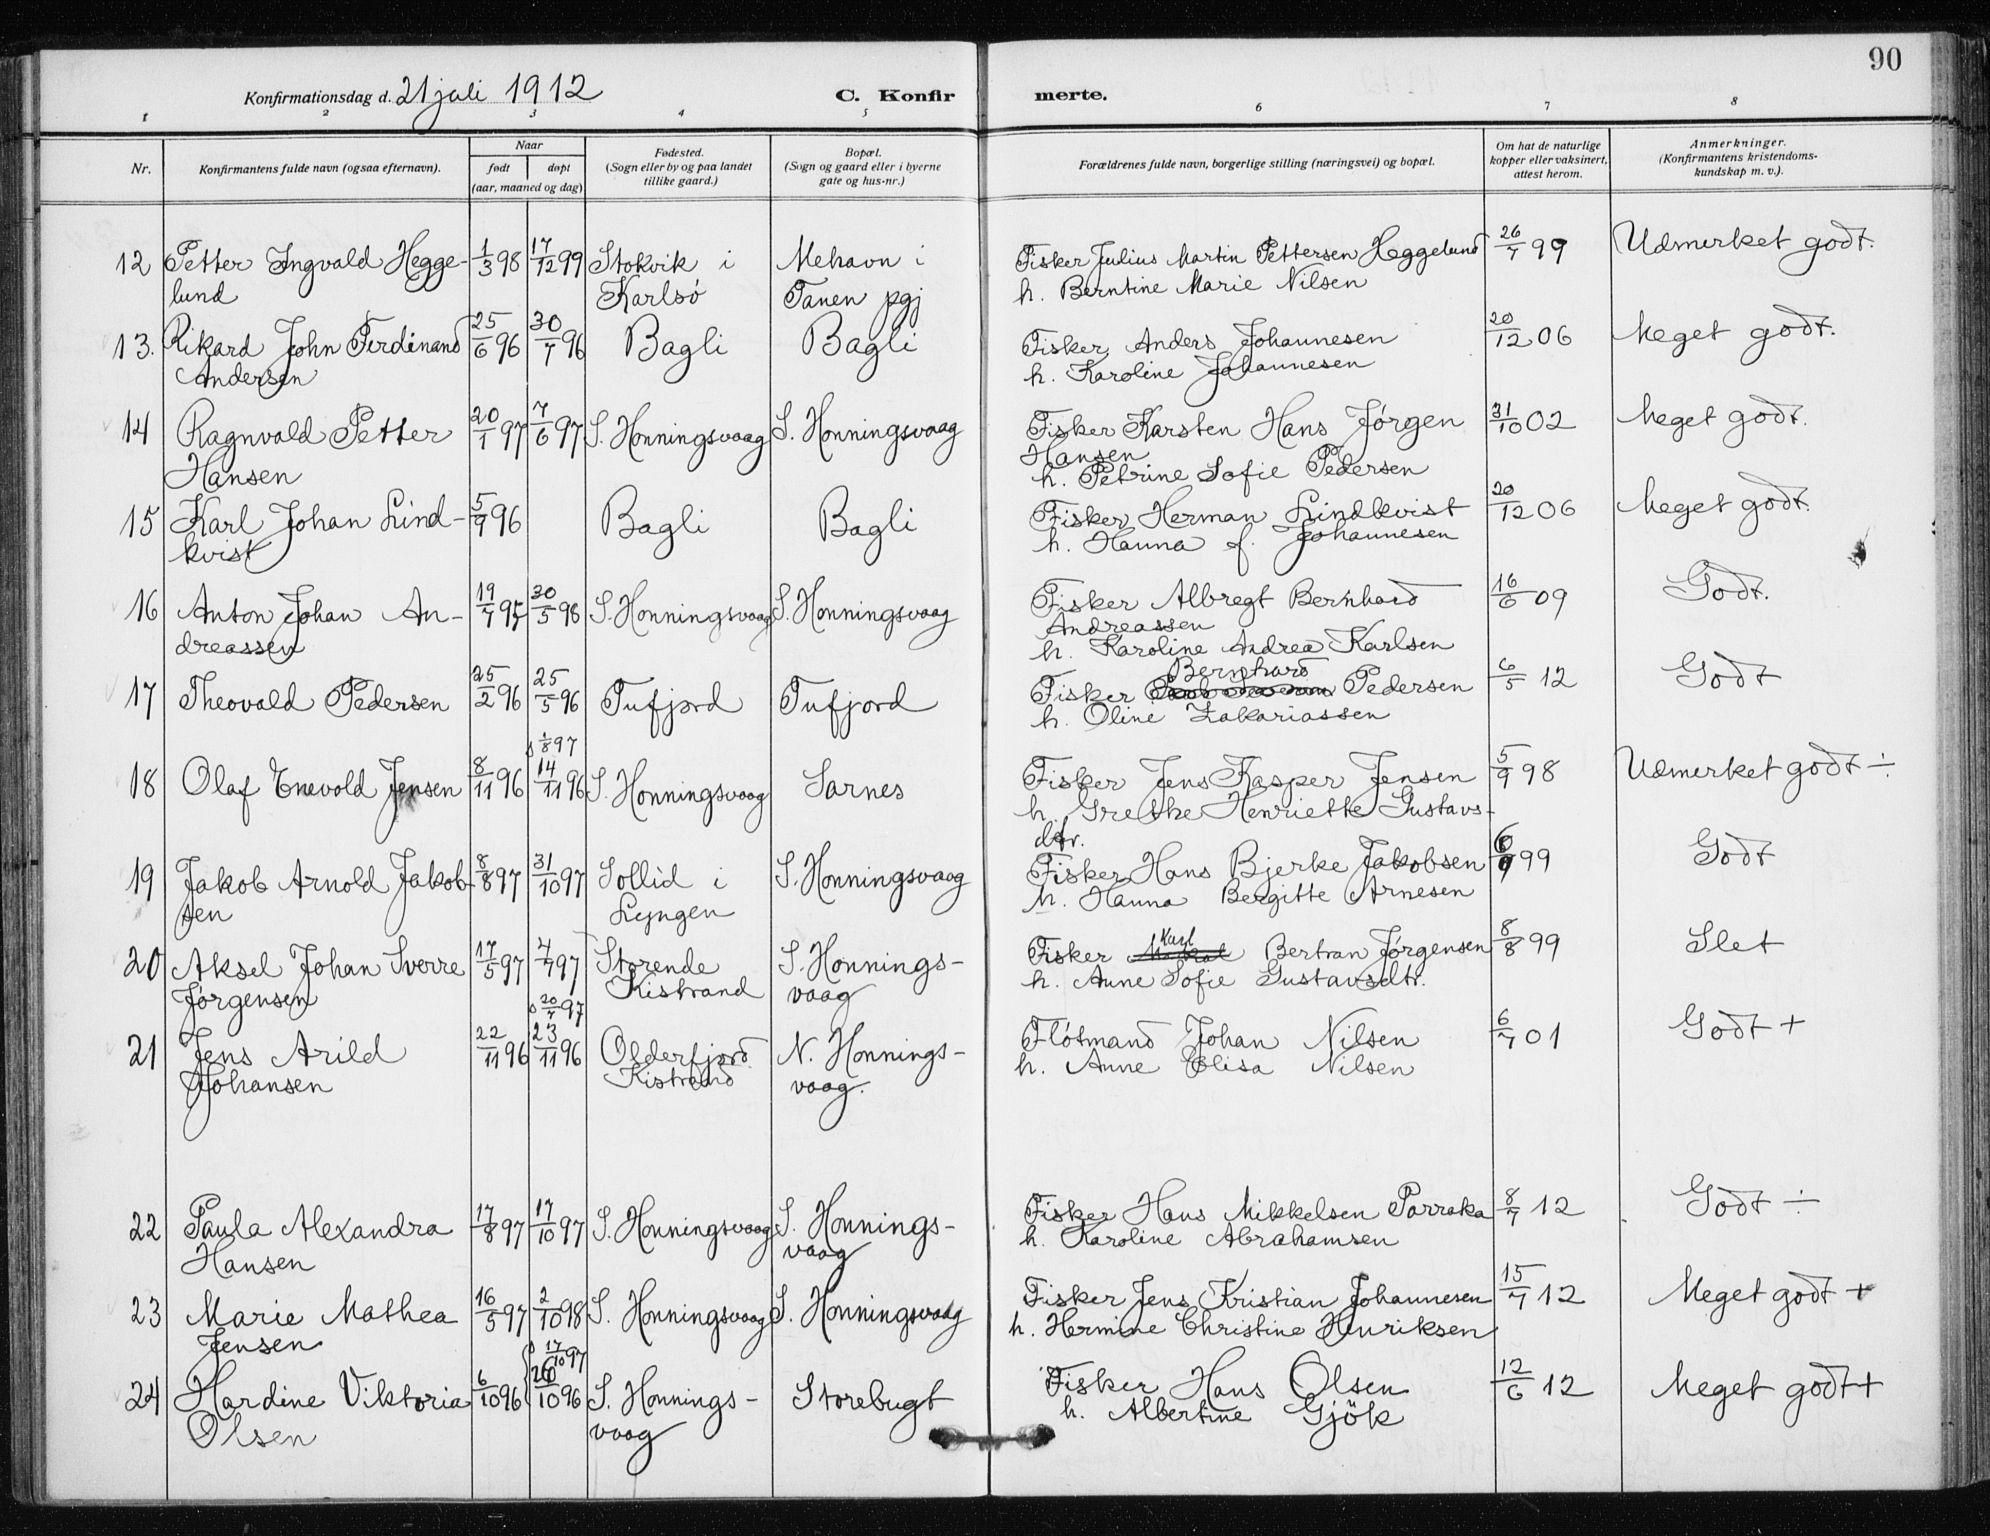 90
Konfirmationsdag d. 21 juli 1912 C. Konfir merte.
1 2 3 4 5 6 7 8
Nr. Konfirmantens fulde navn (ogsaa efternavn). Naar født døpt (aar, maaned og dag) Fødested. (Sogn eller by og paa landet tillike gaard.) Bopæl. (Sogn og gaard eller i byerne gate og hus-nr.) Forældrenes fulde navn, borgerlige stilling (næringsvei) og bopæl. Om hat de naturlige kopper eller vaksinert, attest herom. Anmerkninger. (Konfirmantens kristendoms-kundskap m. v.).
12 Petter Ingvald Hegge- 1/3 98 17/12 99 Stokvik i Mehavn i Fisker Julius Martin Pettersen Heggelund 26/7 99 Udmerket godt.
lund Karlsö Tanen pgj h. Berntine Marie Nilsen
13. Rikard John Ferdinand 25/6 96 30/7 96 Bagli Bagli Fisker Anders Johannesen 20/12 06 Meget godt.
Andersen h. Karoline Johannesen
14 Ragnvald Petter 20/1 97 7/6 97 S. Honningsvaag S. Honningsvaag Fisker Karsten Hans Jörgen 31/10 02 Meget godt.
Hansen Hansen
h. Petrine Sofie Pedersen
15 Karl Johan Lind- 5/9 96 Bagli Bagli Fisker Herman Lindkvist 20/12 06 Meget godt.
kvist h. Hanna f. Johannesen
16 Anton Johan An- 19/7 97 30/5 98 S. Honningsvaag S. Honningsvaag Fisker Albregt Bernhard 16/6 09 Godt.
dreassen Andreassen
h. Karoline Andrea Karlsen
Bernhard
17 Theovald Pedersen 25/2 96 25/5 96 Tufjord Tufjord Fisker Pedersen 6/5 12 Godt
h. Oline Zakariassen
1/8 97
18 Olaf Enevold Jensen 8/11 96 14/11 96 S. Honningsvaag Sarnes Fisker Jens Kasper Jensen 5/9 98 Udmerket godt ÷
h. Grethe Henriette Gustavs-
dtr.
19 Jakob Arnold Jakob- 8/8 97 31/10 97 Sollid i S. Honningsvaag Fisker Hans Bjerke Jakobsen 99 Godt
sen Lyngen h. Hanna Bergitte Arnesen
Karl
20 Aksel Johan Sverre 17/5 97 7/7 97 Storende S. Honnings- Fisker Bertran Jörgensen 8/8 99 Slet
Jörgensen Kistrand vaag h. Anne Sofie Gustavsdtr.
20/7 97
21 Jens Arild 22/11 96 23/11 96 Olderfjord N. Honnings- Flötmand Johan Nilsen 6/7 01 Godt +
Johansen Kistrand vaag. h. Anne Elisa Nilsen
22 Paula Alexandra 17/8 97 17/10 97 S. Honningsvaag S. Honnings- Fisker Hans Mikkelsen Porraka 8/7 12 Godt ÷
Hansen vaag h. Karoline Abrahamsen
23 Marie Mathea 16/5 97 2/10 98 S. Honningsvaag S. Honningsvaag Fisker Jens Kristian Johannesen 15/7 12 Meget godt +
Jensen h. Hermine Christine Henriksen
17/10 97
24 Hardine Viktoria 6/10 96 26/10 96 S. Honnings- Storebugt Fisker Hans Olsen 12/6 12 Meget godt +
Olsen vaag h. Albertine Gjök